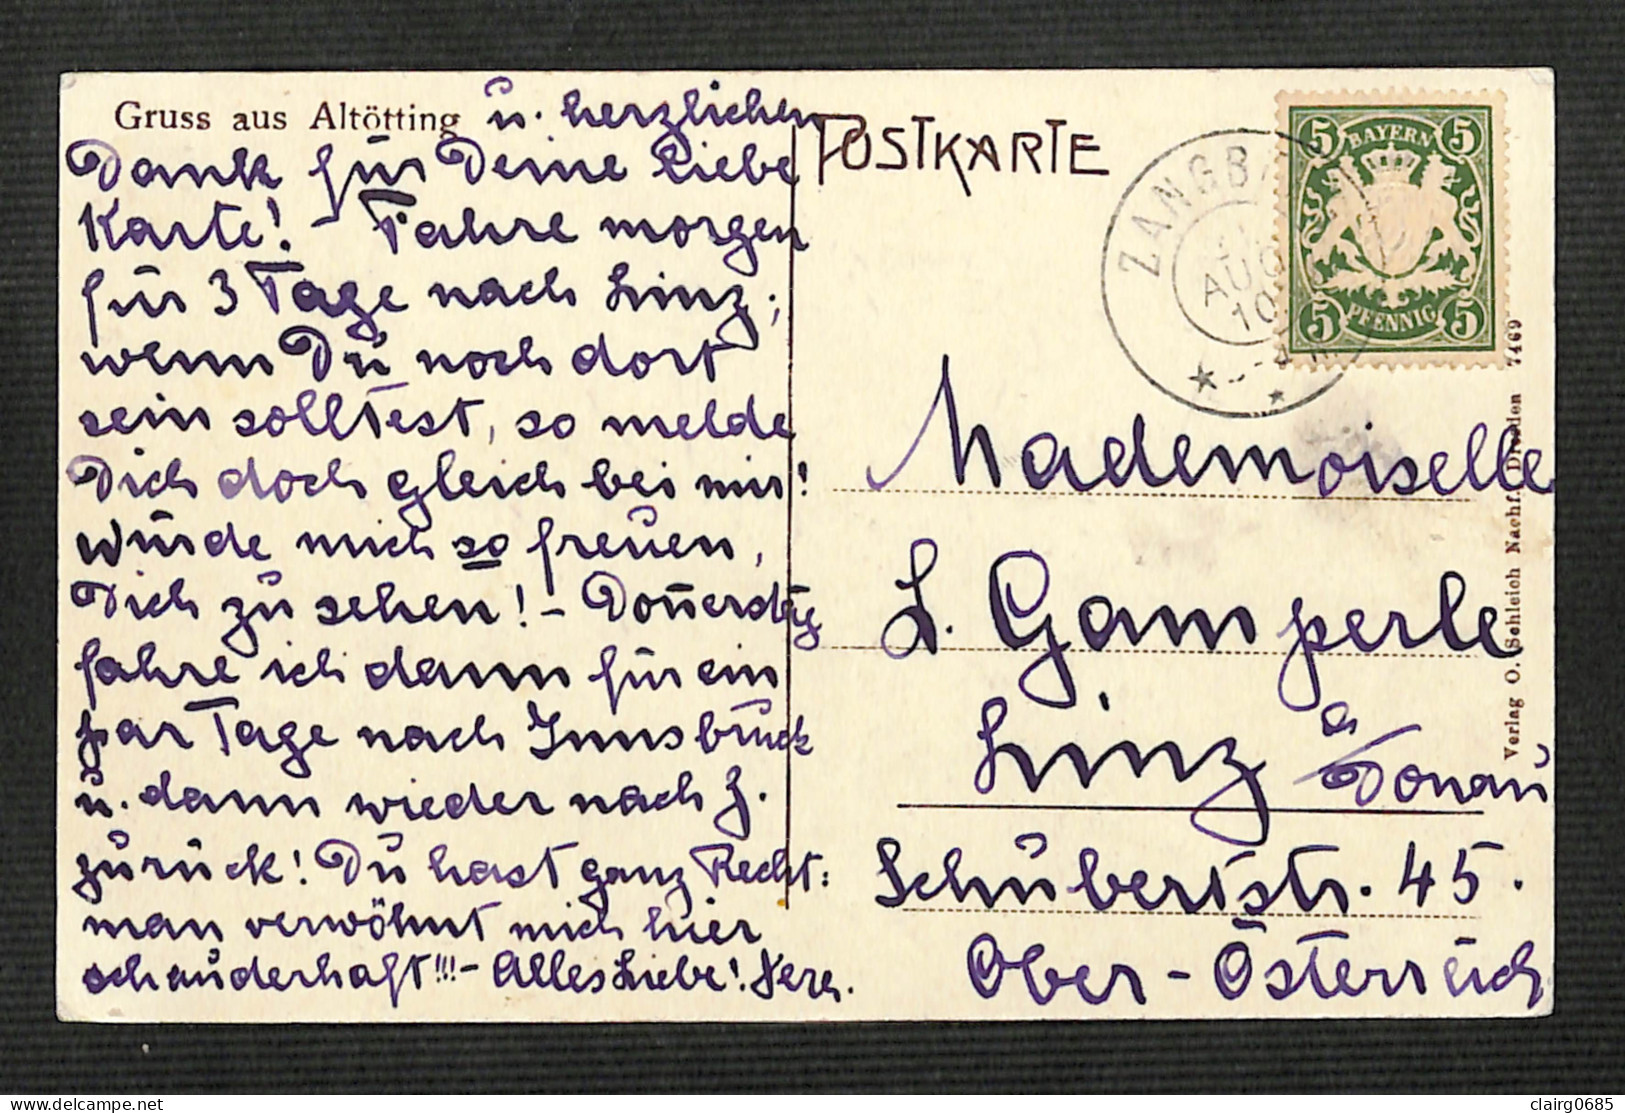 Gruss aus Altötting u. herzlichen
Dank für Deine liebe
Karte! - Fahre morgen
für 3 Tage nach Linz;
wenn Du noch dort
sein solltest, so melde
Dich doch gleich bei mir!
Würde mich so freuen,
Dich zu sehen! - Don̄erstag
fahre ich dann für ein
par Tage nach Innsbruck
u. dann wieder nach Z.
zurück! Du hast ganz Recht:
man verwöhnt mich hier
schauderhaft!!! - Alles Liebe!
POSTKARTE
BAYERN
5 5
5 5
PFENNIG
ZANGB
AUG
10
Mademoiselle
L. Gamperle
Linz a/Donau
Schubertstr. 45.
Ober-Österreich
Verlag O. Schleich Nachf. Dresden 7469
clairg0685
delcampe.net